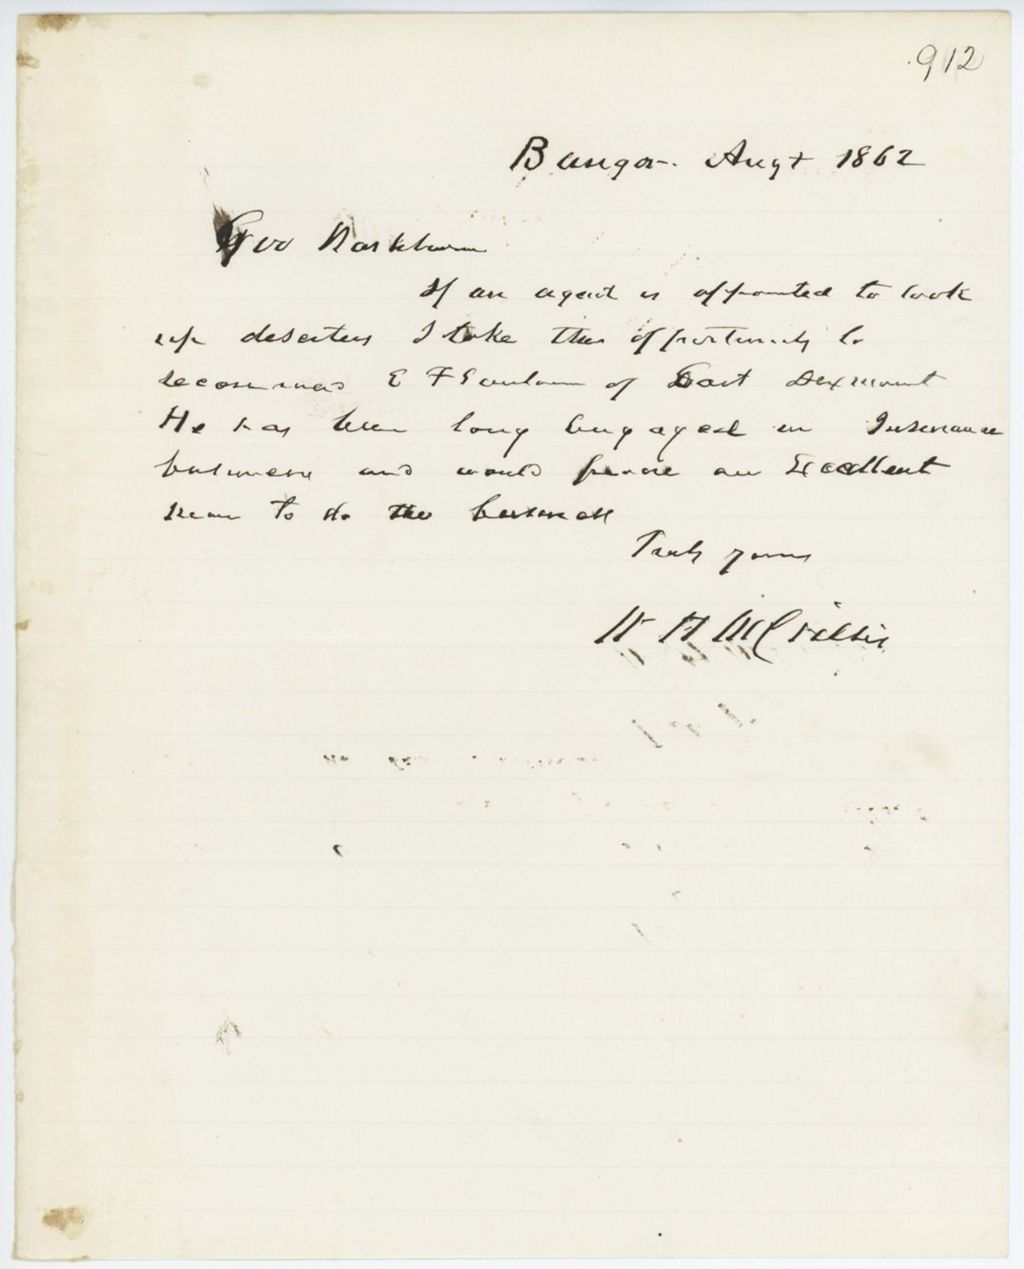 912
Bangor Augt 1862
Gov Washburn
If an agent is appointed to look
up deserters I take this opportunity to
recommend E F Sanborn of East Dixmont
He has been long engaged in Insurance
business and would prove an Excellent
man to do the business
Truly yours
W H McCrillis